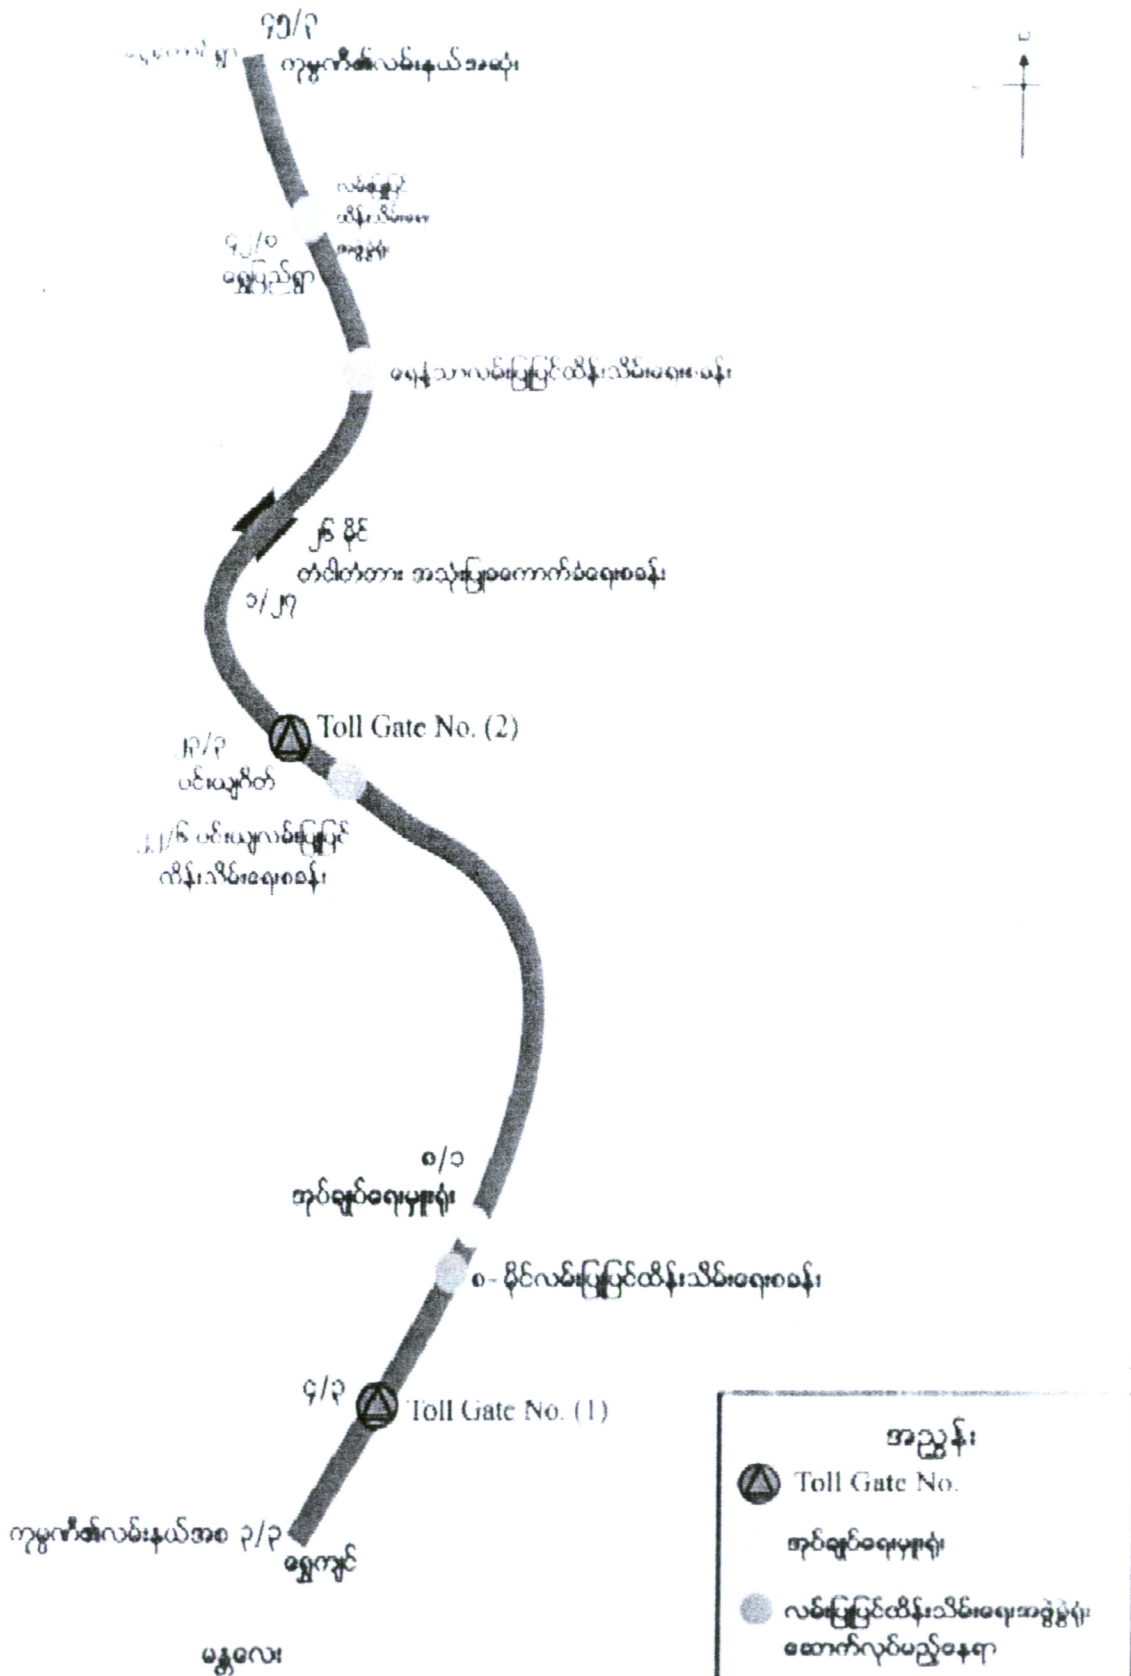 ၄၅/၃
ကုမ္ပဏီ၏လမ်းနယ်အဆုံး
လမ်းပြုပြင်
ထိန်းသိမ်းရေး
အဖွဲ့ရုံး
၄၂/၀
ရွှေပြည်ရွာ
ရေနံ့သာလမ်းပြုပြင်ထိန်းသိမ်းရေးစခန်း
၂၆ မိုင်
တံငါတံတား အသုံးပြုခကောက်ခံရေးစခန်း
၁/၂၇
Toll Gate No. (2)
၂၃/၃
ပင်းယျဂိတ်
၂၂/၆ ပင်းယျလမ်းပြုပြင်
ထိန်းသိမ်းရေးစခန်း
၈/၁
အုပ်ချုပ်ရေးမှူးရုံး
၈-မိုင်လမ်းပြုပြင်ထိန်းသိမ်းရေးစခန်း
၄/၃
Toll Gate No. (1)
ကုမ္ပဏီ၏လမ်းနယ်အစ ၃/၃
ရွှေကျင်
မန္တလေး
အညွှန်း
Toll Gate No.
အုပ်ချုပ်ရေးမှူးရုံး
လမ်းပြုပြင်ထိန်းသိမ်းရေးအဖွဲ့ခွဲရုံး
ဆောက်လုပ်မည့်နေရာ